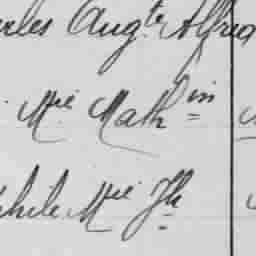 rles Aug.te Alfred
Mie Math in
phile Mie Jh